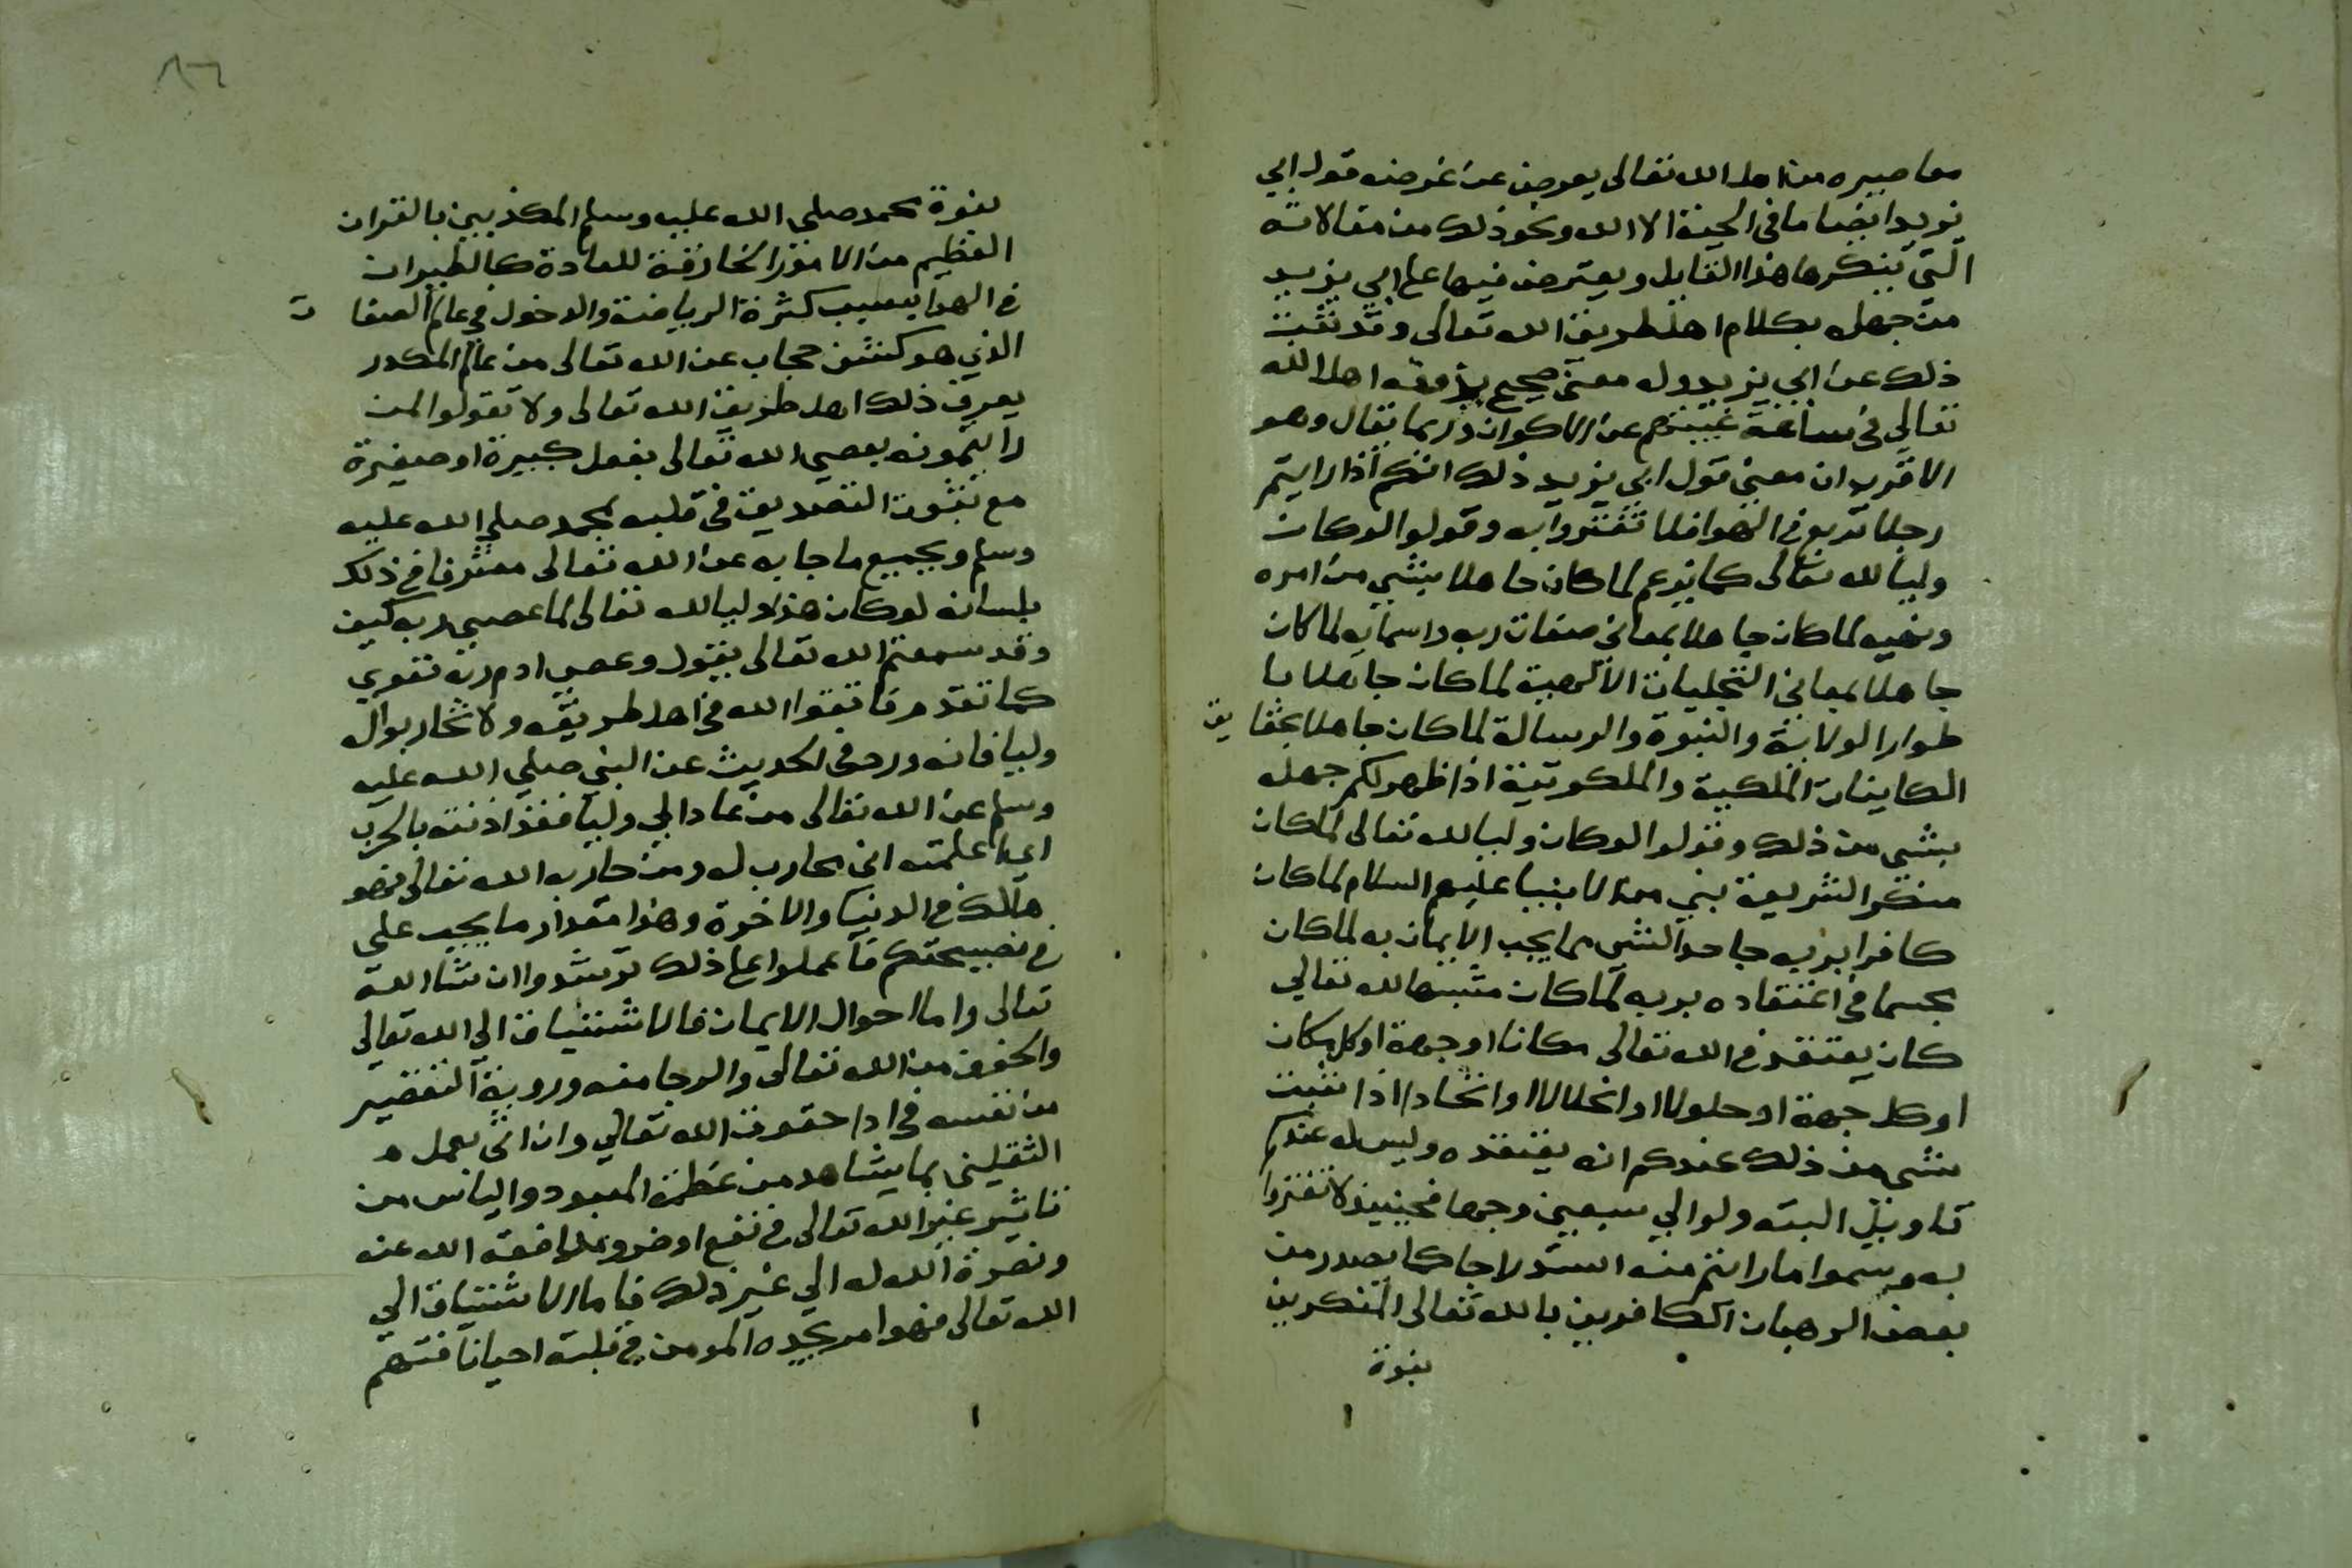 معاصيره من اهل الله تعالى يعوض عن غرضه قول ابي
يزيد ايضا ما في الجبة الا الله ونحو ذلك من مقالاته
التي ينكرها هذا القايل ويعترض فيها على ابي يزيد
من جهله بكلام اهل طريق الله تعالى وقد ثبت
ذلك عن ابي يزيد وله معنى صحيح يذوقه اهل الله
تعالى في ساعة غيبتهم عن الاكوان وربما يقال وهو
الاقرب ان معنى قول ابي يزيد ذلك انكم اذا رايتم
رجلا تربع في الهوا فلا تغتروا به وقولوا لو كان
وليا لله تعالى كما يزعم لما كان جاهلا بشي من امره
ونهيه لما كان جاهلا بمعاني صفات ربه واسمايه لما كان
جاهلا بمعاني التجليات الالهية لما كان جاهلا با
طوار الولاية والنبوة والرسالة لما كان جاهلا بحقايق
الكاينات الملكية والملكوتية اذا ظهر لكم جهله
بشي من ذلك وقولوا لو كان وليا لله تعالى لما كان
منكرا لشريعة نبي من الانبيا عليهم السلام لما كان
كافرا بربه جاحدا لشي مما يجب الايمان به لما كان
مجسما في اعتقاده بربه لما كان مشبها لله تعالى
كان يعتقد في الله تعالى مكانا او جهة او كل مكان
او كل جهة او حلولا او انحلالا او اتحادا اذا ثبت
شي من ذلك عندكم انه يعتقده وليس له عندكم
تاويل البته ولو الي سبعين وجها فحينيذ لا تغتروا
به وسموا ما رايتم منه استدراجا كما يصدر من
بعض الرهبان الكافرين بالله تعالى المنكرين
بنبوة
٨٦
بنبوة محمد صلى الله عليه وسلم المكذبين بالقران
العظيم من الامور الخارقة للعادة كالطيران
في الهوا بسبب كثرة الرياضة والدخول في عالم الصفات
الذي هو كشف حجاب عن الله تعالى من عالم المكدر
يعرف ذلك اهل طريق الله تعالى ولا تقولوا لمن
رايتموه يعصي الله تعالى بفعل كبيرة او صغيرة
مع ثبوت التصديق في قلبه بمحمد صلى الله عليه
وسلم وبجميع ما جا به عن الله تعالى معترفا في ذلك
بلسانه لو كان هذا وليا لله تعالى لما عصي ربه كيف
وقد سمعتم الله تعالى يقول وعصى ادم ربه فغوي
كما تقدم فاتقوا الله في اهل طريقه ولا تحاربوا له
وليا فانه ورد في الحديث عن النبي صلى الله عليه
وسلم عن الله تعالى من عادا لي وليا فقد اذنته بالحرب
اي اعلمته اني محارب له ومن حاربه الله تعالى فهو
هالك في الدنيا والاخرة وهذا مقدار ما يجب على
في نصيحتكم فاعملوا على ذلك ترشدوا ان شا الله
تعالى واما احوال الايمان فالاشتياق الى الله تعالى
والخوف من الله تعالى والرجا منه وروية التقصير
من نفسه في ادا حقوق الله تعالى وان اتى بعمل
الثقلين بما يشاهد من عظمة المعبود والياس من
تاثير غير الله تعالى في نفع او ضر وبمدافعة الله عنه
ونصرة الله له الى غير ذلك فاما الاشتياق الى
الله تعالى فهو امر يجده المومن في قلبه احيانا فتهم